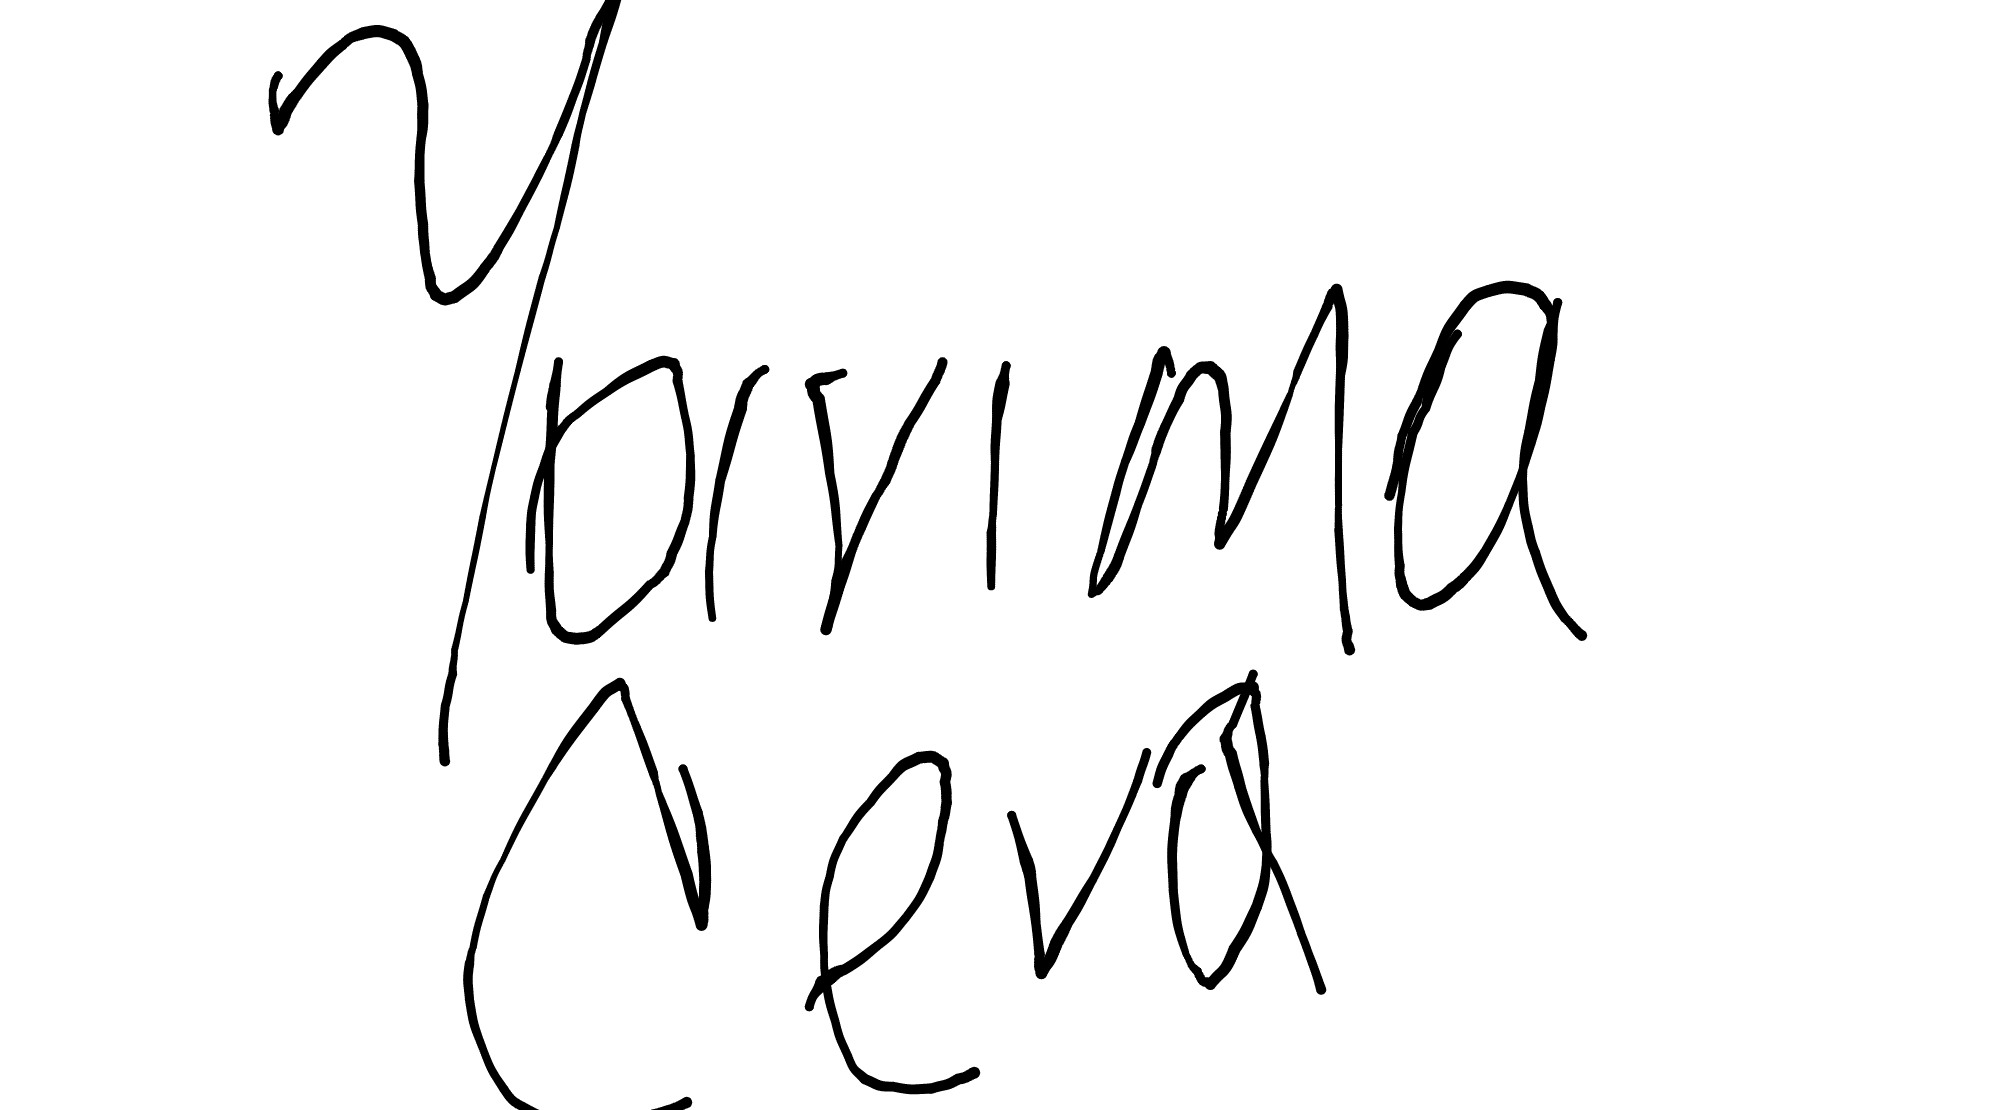 Yarima
Ceva